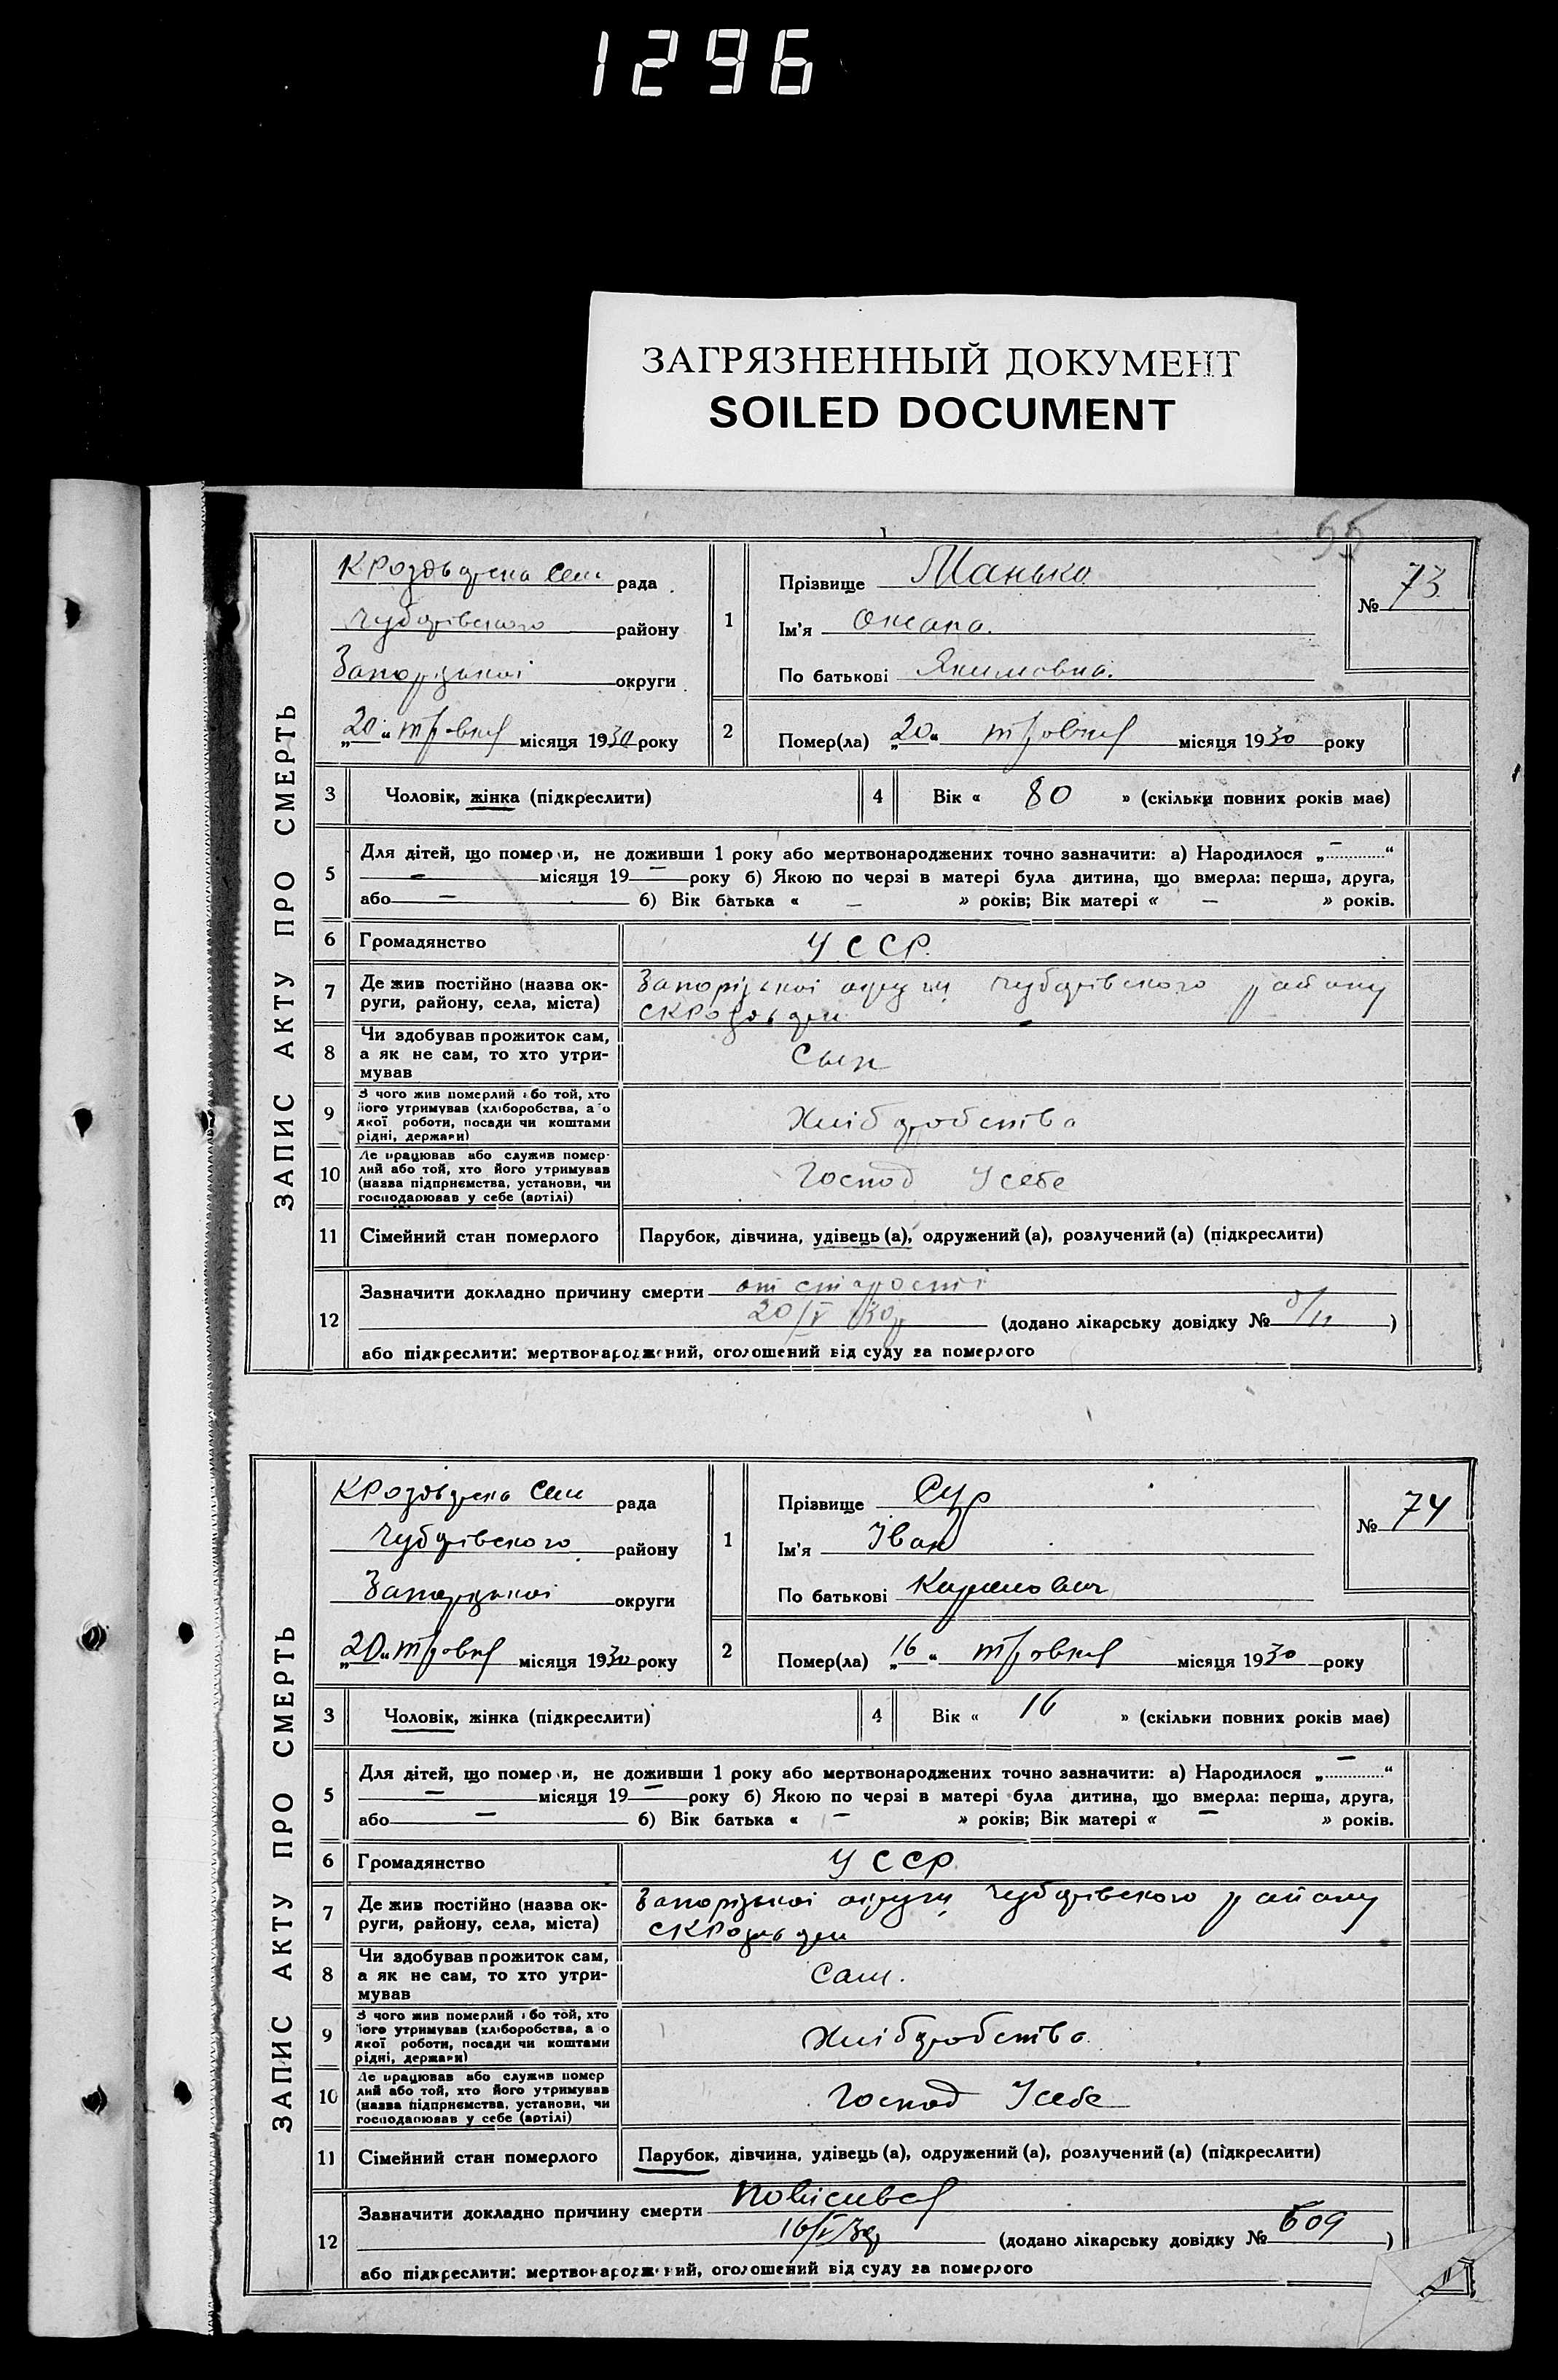 1296
ЗАГРЯЗНЕННЫЙ ДОКУМЕНТ
SOILED DOCUMENT
55
ЗАПИС АКТУ ПРО СМЕРТЬ
КРоздорска Сель рада
Чубарівського району
Запорізької округи
„20“ травня місяця 1930 року
1
Прізвище Манько
Ім'я Оксана.
По батькові Якимовна.
№ 73
2
Помер(ла) „20“ травня місяця 1930 року
3 Чоловік, жінка (підкреслити)
4 Вік « 80 » (скільки повних років має)
5 Для дітей, що померли, не доживши 1 року або мертвонароджених точно зазначити: а) Народилося „ — “
— місяця 19 — року б) Якою по черзі в матері була дитина, що вмерла: перша, друга,
або — б) Вік батька « — » років; Вік матері « — » років.
6 Громадянство УССР.
7 Де жив постійно (назва округи, району, села, міста) Запорізької округи Чубарівського району
8 Чи здобував прожиток сам,
а як не сам, то хто утри-
мував Сын
9 З чого жив померлий або той, хто
його утримував (хліборобства, або
якої роботи, посади чи коштами
рідні, держави) Хліборобства
10 Де працював або служив помер-
лий або той, хто його утримував
(назва підприємства, установи, чи
господарював у себе (артілі) Господ У себе
11 Сімейний стан померлого Парубок, дівчина, удівець (а), одружений (а), розлучений (а) (підкреслити)
12 Зазначити докладно причину смерти от старості
20/V 30р (додано лікарську довідку № )
або підкреслити: мертвонароджений, оголошений від суду за померлого
ЗАПИС АКТУ ПРО СМЕРТЬ
КРоздорска Сель рада
Чубарівського району
Запорізької округи
„20“ травня місяця 1930 року
1
Прізвище Сур
Ім'я Іван
По батькові
№ 74
2
Помер(ла) „16“ травня місяця 1930 року
3 Чоловік, жінка (підкреслити)
4 Вік « 16 » (скільки повних років має)
5 Для дітей, що померли, не доживши 1 року або мертвонароджених точно зазначити: а) Народилося „ — “
— місяця 19 — року б) Якою по черзі в матері була дитина, що вмерла: перша, друга,
або — б) Вік батька « — » років; Вік матері « — » років.
6 Громадянство УССР
7 Де жив постійно (назва округи, району, села, міста) Запорізької округи Чубарівського району
8 Чи здобував прожиток сам,
а як не сам, то хто утри-
мував Сам.
9 З чого жив померлий або той, хто
його утримував (хліборобства, або
якої роботи, посади чи коштами
рідні, держави) Хліборобства
10 Де працював або служив помер
лий або той, хто його утримував
(назва підприємства, установи, чи
господарював у себе (артілі) Господ У себе
11 Сімейний стан померлого Парубок, дівчина, удівець (а), одружений (а), розлучений (а) (підкреслити)
12 Зазначити докладно причину смерти повісився
16/V 30р (додано лікарську довідку № 609 )
або підкреслити: мертвонароджений, оголошений від суду за померлого